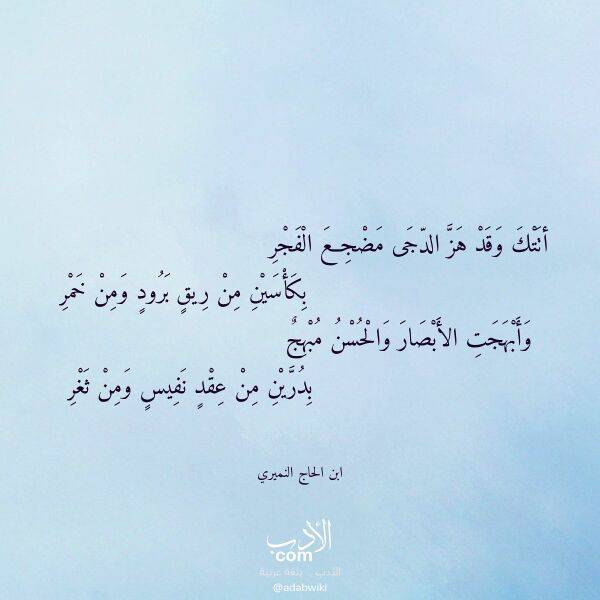 أتَتْكَ وَقَدْ هَزَّ الدّجَى مَضْجِعَ الْفَجْرِ
بِكَأْسَيْنِ مِنْ رِيقٍ بَرُودٍ وَمِنْ خَمْرِ
وَأَبْهَجَتِ الأَبْصَارَ وَالْحُسْنُ مُبْهِجٌ
بِدُرَّيْنِ مِنْ عِقْدٍ نَفِيسٍ وَمِنْ ثَغْرِ
ابن الحاج النميري
الأدب
com
الأدب .. بلغة عربية
@adabwiki